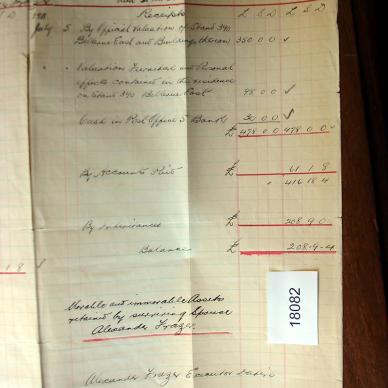 Receipts £ S D £ S D
July 5 By Official Valuation of Stand 340
Bellevue East and Buildings thereon 350 0 0
" " Valuation Furniture and Personal
effects contained in the residence
on Stand 340 Bellevue East 98 0 0
Cash in Post Office S Bank 30 0 0
£ 478 0 0 478 0 0
By Accounts £ 61 1 8
" 416 18 4
By Inheritances £ 208 9 0
Balance £ 208-9-4
Movable and immovable Assets
retained by surviving Spouse
Alexander Frazer
Alexander Frazer Executor Dative
18082